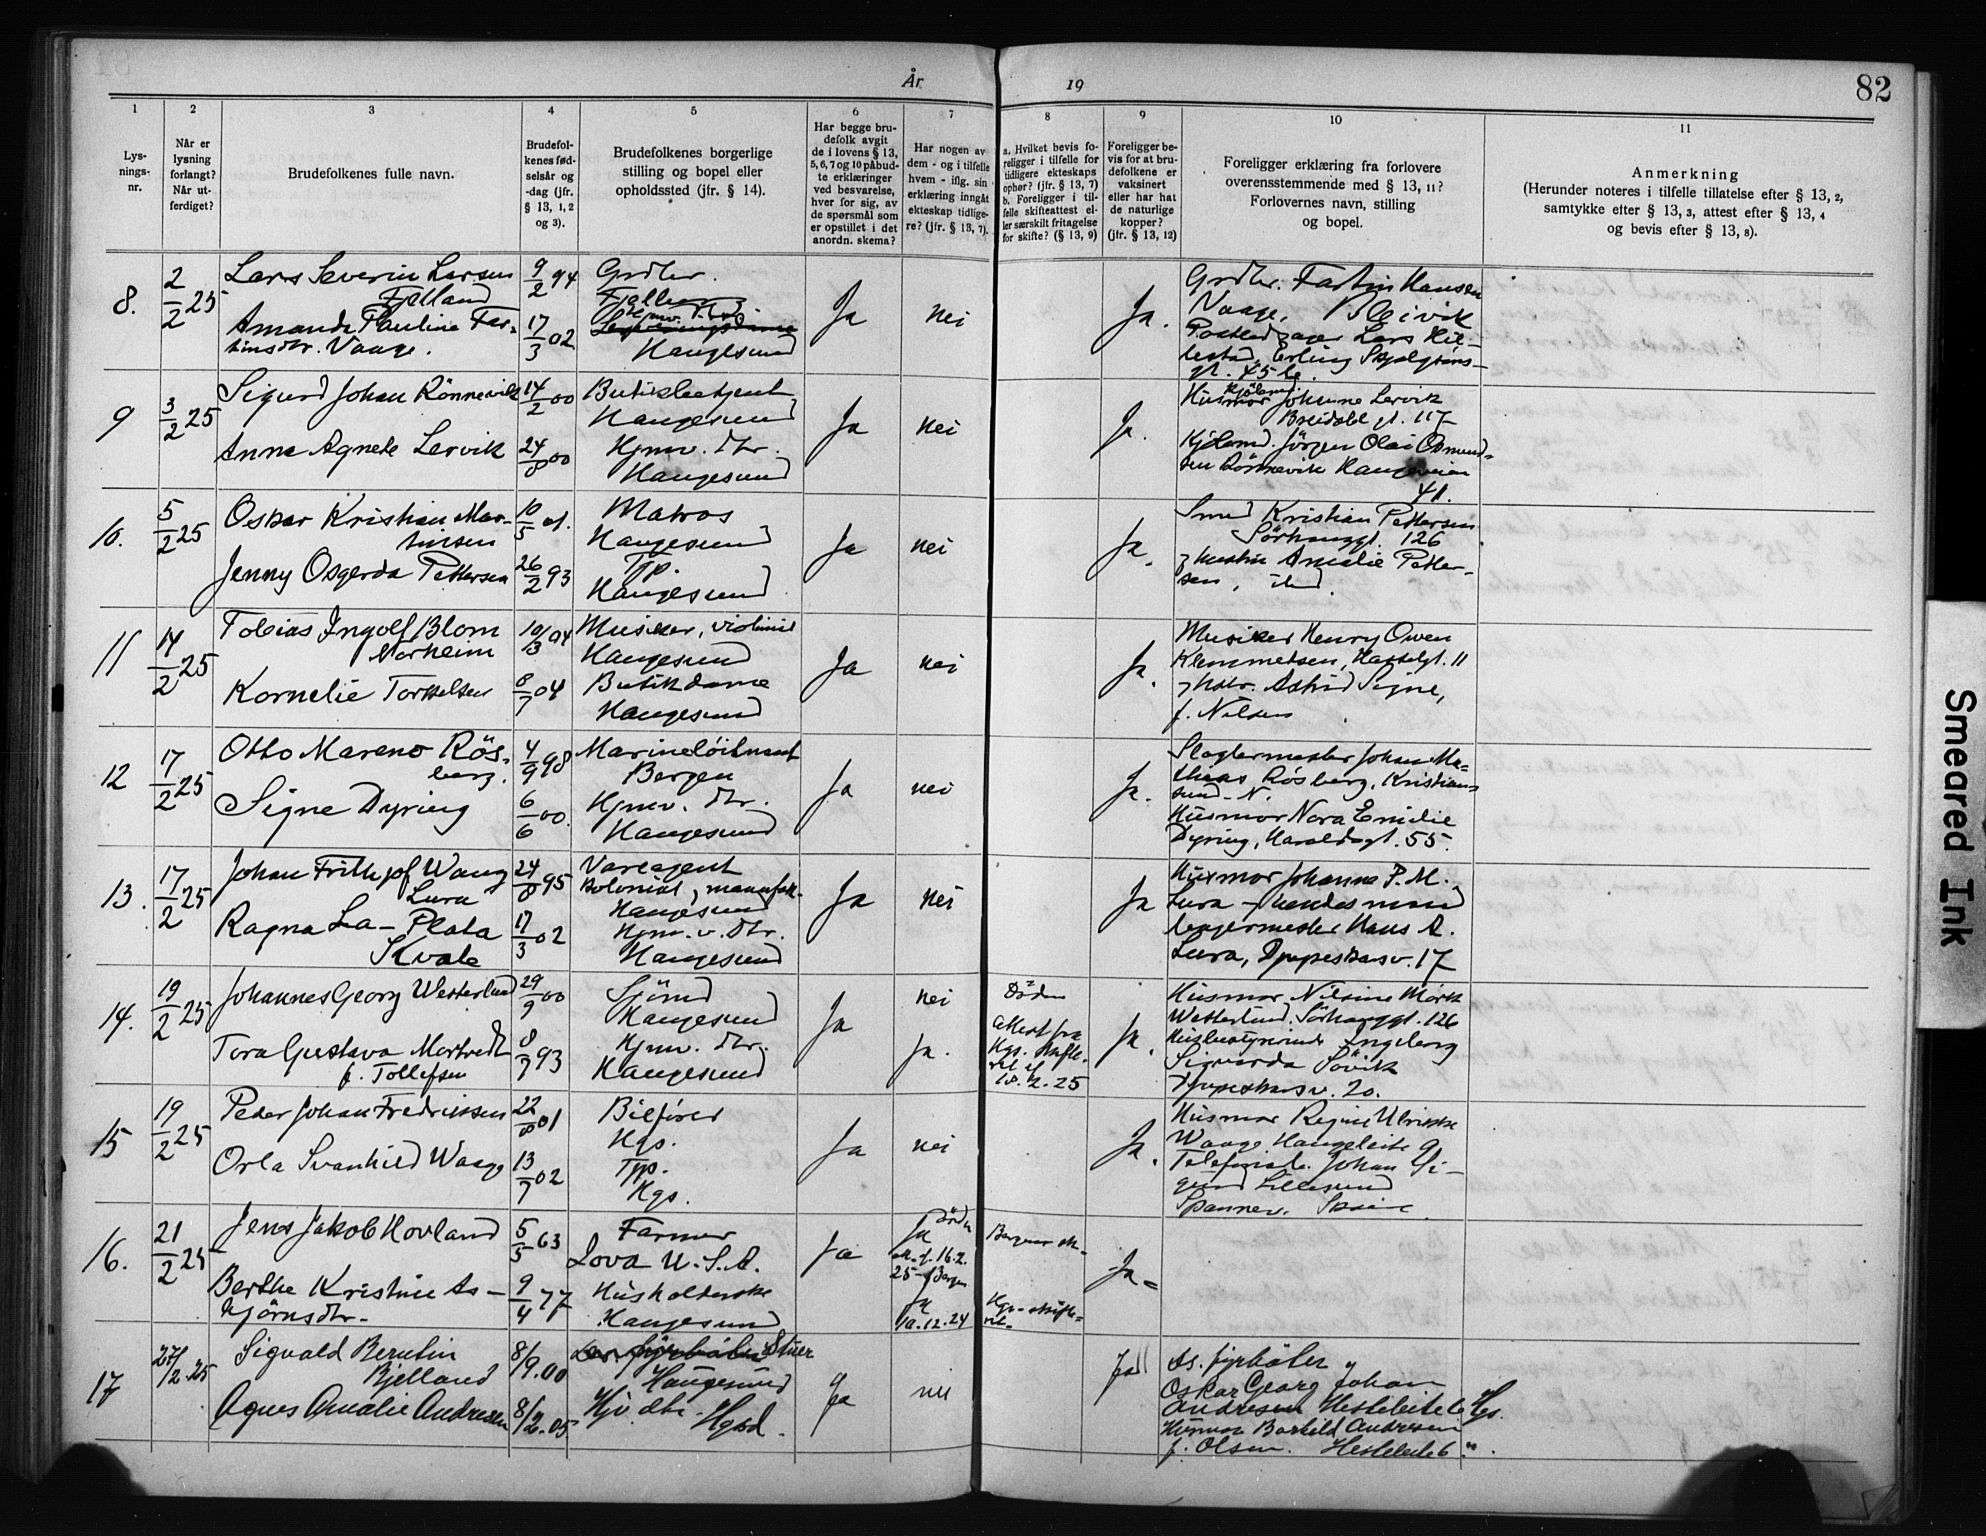 År 19
82
1
2
3
4
5
6
7
8
9
10
11
Lys-
nings-
nr.
Når er
lysning
forlangt?
Når ut-
ferdiget?
Brudefolkenes fulle navn.
Brudefol-
kenes fød-
selsår og
-dag (jfr.
§ 13, 1, 2
og 3).
Brudefolkenes borgerlige
stilling og bopel eller
opholdssted (jfr. § 14).
Har begge bru-
defolk avgit
de i lovens § 13,
5, 6, 7 og 10 påbud-
te erklæringer
ved besvarelse,
hver for sig, av
de spørsmål som
er opstillet i det
anordn. skema?
Har nogen av
dem - og i tilfelle
hvem - iflg. sin
erklæring inngåt
ekteskap tidlige-
re? (jfr. § 13, 7).
a. Hvilket bevis fo-
religger i tilfelle for
tidligere ekteskaps
ophør? (jfr. § 13, 7)
b. Foreligger i til-
felle skifteattest el-
ler særskilt fritagelse
for skifte? (§ 13, 9)
Foreligger be-
vis for at bru-
defolkene er
vaksinert
eller har hat
de naturlige
kopper?
(jfr. § 13, 12)
Foreligger erklæring fra forlovere
overensstemmende med § 13, 11?
Forlovernes navn, stilling
og bopel.
Anmerkning
(Herunder noteres i tilfelle tillatelse efter § 13, 2,
samtykke efter § 13, 3, attest efter § 13, 4
og bevis efter § 13, 8).
8. 2/2 25 Lars Severin Larsen
Fjelland
9/2 94
Grdbr.
Amanda Pauline Far-
tinsdtr. Vaage.
17/3 02
Haugesund
Ja nei Ja.
Grdbr. Fartin Hansen
Vaage, Bleivik
Lars Hil-
lestad, Erling Skjalgsøns-
gt. 45 b.
9 3/2 25 Sigurd Johan Rönnevik
14/2 00
Butikbetjent
Haugesund
Anna Agnete Lervik
24/8 00
Hjmv. dtr.
Haugesund
Ja nei Ja.
Husmor Johanne Lervik
Breidabl. gt. 117
Kjöbmd. Jörgen Olai Osmund-
sen Rönnevik Haugeveien
41.
10. 5/2 25 Oskar Kristian Mar-
tinsen
10/5 01.
Matros
Haugesund
Jenny Osgerda Pettersen
26/2 93
Typ.
Haugesund
Ja nei Ja.
Smed Kristian Pettersen
Sörhauggt. 126
og hustru Amalie Petter-
sen, ibid.
11 14/2 25 Tobias Ingolf Blom
Norheim
10/3 04
Musiker, violinist
Haugesund
Kornelie Torkelsen
8/7 04
Butikdame
Haugesund
Ja nei Ja.
Musiker Henry Owen
Klemmetsen, Hasselgt. 11
og hstr. Astrid Signe,
f. Nilsen
12 17/2 25 Otto Mareno Rös-
berg.
4/9 98
Marinelöitnant
Bergen
Signe Dyring
6/6 00.
Hjmv. dtr.
Haugesund
Ja nei Ja.
Slagtermester Johan Ma-
thias Rösberg, Kristian-
sund N.
Husmor Nora Emilie
Dyring, Haraldsgt. 55.
13. 17/2 25 Johan Frithjof Wang
Lura
24/8 95
Vareagent
kolonial, manufak-
Haugesund
Ragna La-Plata
Kvale
17/3 02
Hjm. v. dtr.
Haugesund
Ja nei Ja
Husmor Johanna P. M.
Lura og hendes mand
Hans A.
Lura, Djupeskarsv. 17
14. 19/2 25 Johannes Georg Westerlund
29/9 00
Sjömd
Haugesund
Tora Gustava Mortvedt
f. Tollefsen
8/7 93
Hjmv. dtr.
Haugesund
Ja nei ja.
Döden
Attest fra
Hgs. skifte-
rett af
18.2.25
Ja.
Husmor Nilsine Mörk
Westerlund, Sörhauggt. 126
Husbestyrerinde Ingeborg
Sigvarda Sövik
Djupeskarsv. 20.
15 19/2 25 Peder Johan Fredriksen
22/8 01
Bilförer
Hgs.
Orla Svanhild Waage
13/7 02
Typ.
Hgs.
Ja nei Ja.
Husmor Regine Ulrikke
Waage Haugeleite 9
Johan Si-
gurd Lillesund
Spannev.
16. 21/2 25 Jens Jakob Hovland
5/5 63
Farmer
Iova U.S.A.
Berthe Kristine As-
björnsdtr.
9/4 77
Husholderske
Haugesund
Ja
Ja döden
16.2.
25 Bergen
Ja
10.12.24
Hgs. skifte-
ret.
Ja
17 27/2.25 Sigvald Berntin
Bjelland
8/9.00
Stuer
Haugesund
Agnes Amalie Andresen
8/2.05
Hjv dtr. Hgsd.
Ja nei Ja
ds. fyrböter
Oskar Georg Johan
Andresen Hesteleite 6 Hgs.
Husmor Borhild Andresen
f. Olsen. Hesteleite 6 ".
Smeared Ink